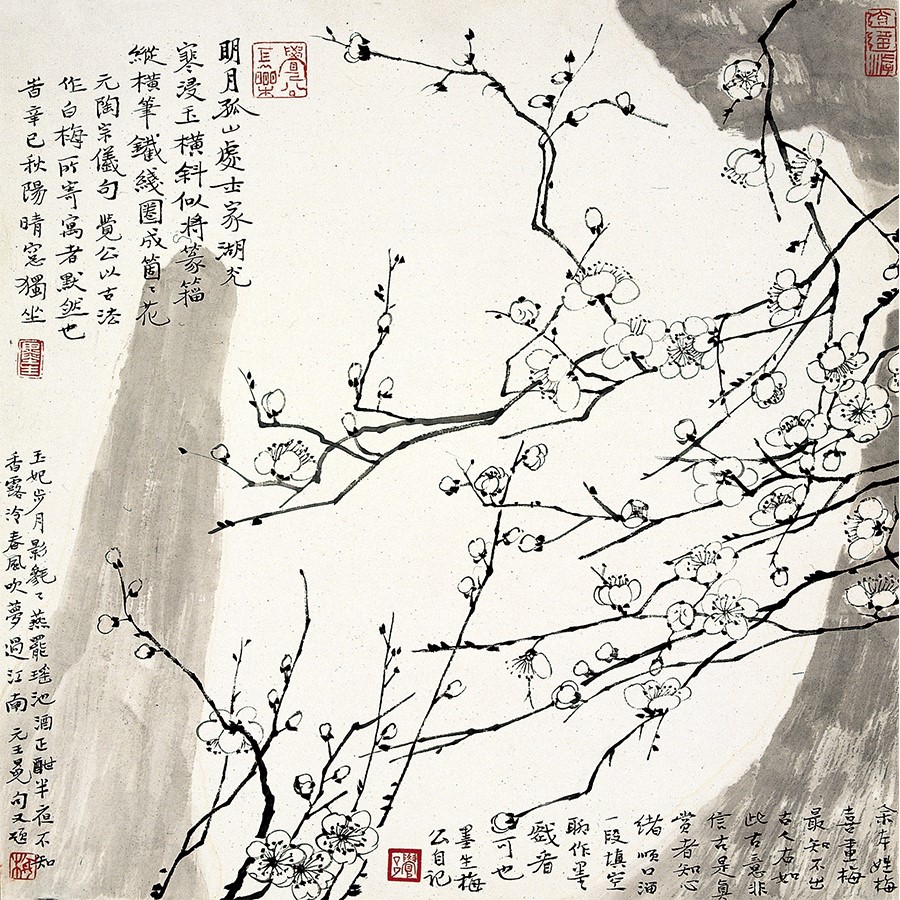 明月孤山處士家湖光
寒浸玉橫斜似將篆籀
縱橫筆鐵綫圈成箇〻花
元陶宗儀句 覺公以古法
作白梅所寄寓者默然也
昔辛巳秋陽晴窓獨坐
玉妃步月影毿〻燕罷瑶池酒正酣半夜不知
香露冷春風吹夢過江南 元王冕句又題
余本姓梅
喜畫梅
最知不出
古人右如
此古意非
信去是真
賞者知心
緒順口溜
一段填空
聊作墨
戲看
可也
墨生梅
公自記